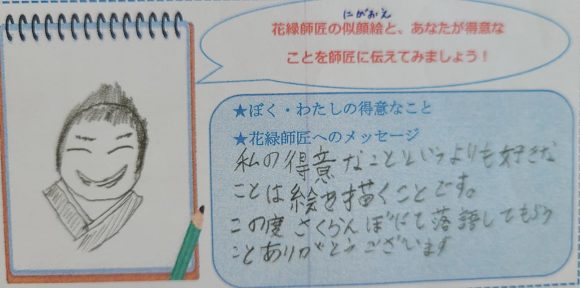 にがおえ
花緑師匠の似顔絵と、あなたが得意な
ことを師匠に伝えてみましょう！
★ぼく・わたしの得意なこと
★花緑師匠へのメッセージ
私の得意なことというよりも好きな
ことは絵を描くことです。
この度さくらんぼにて落語してもらう
ことありがとうございます